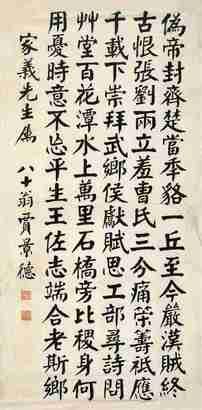 偽帝封齊楚當秊貉一丘至今嚴漢賊終
古恨張劉兩立羞曹氏三分痛策籌祗應
千載下崇拜武鄉侯獻賦思工部尋詩問
艸堂百花潭水上萬里石橋旁比稷身何
用憂時意不忘平生王佐志端合老斯鄉
家義先生屬 八十翁賈景德